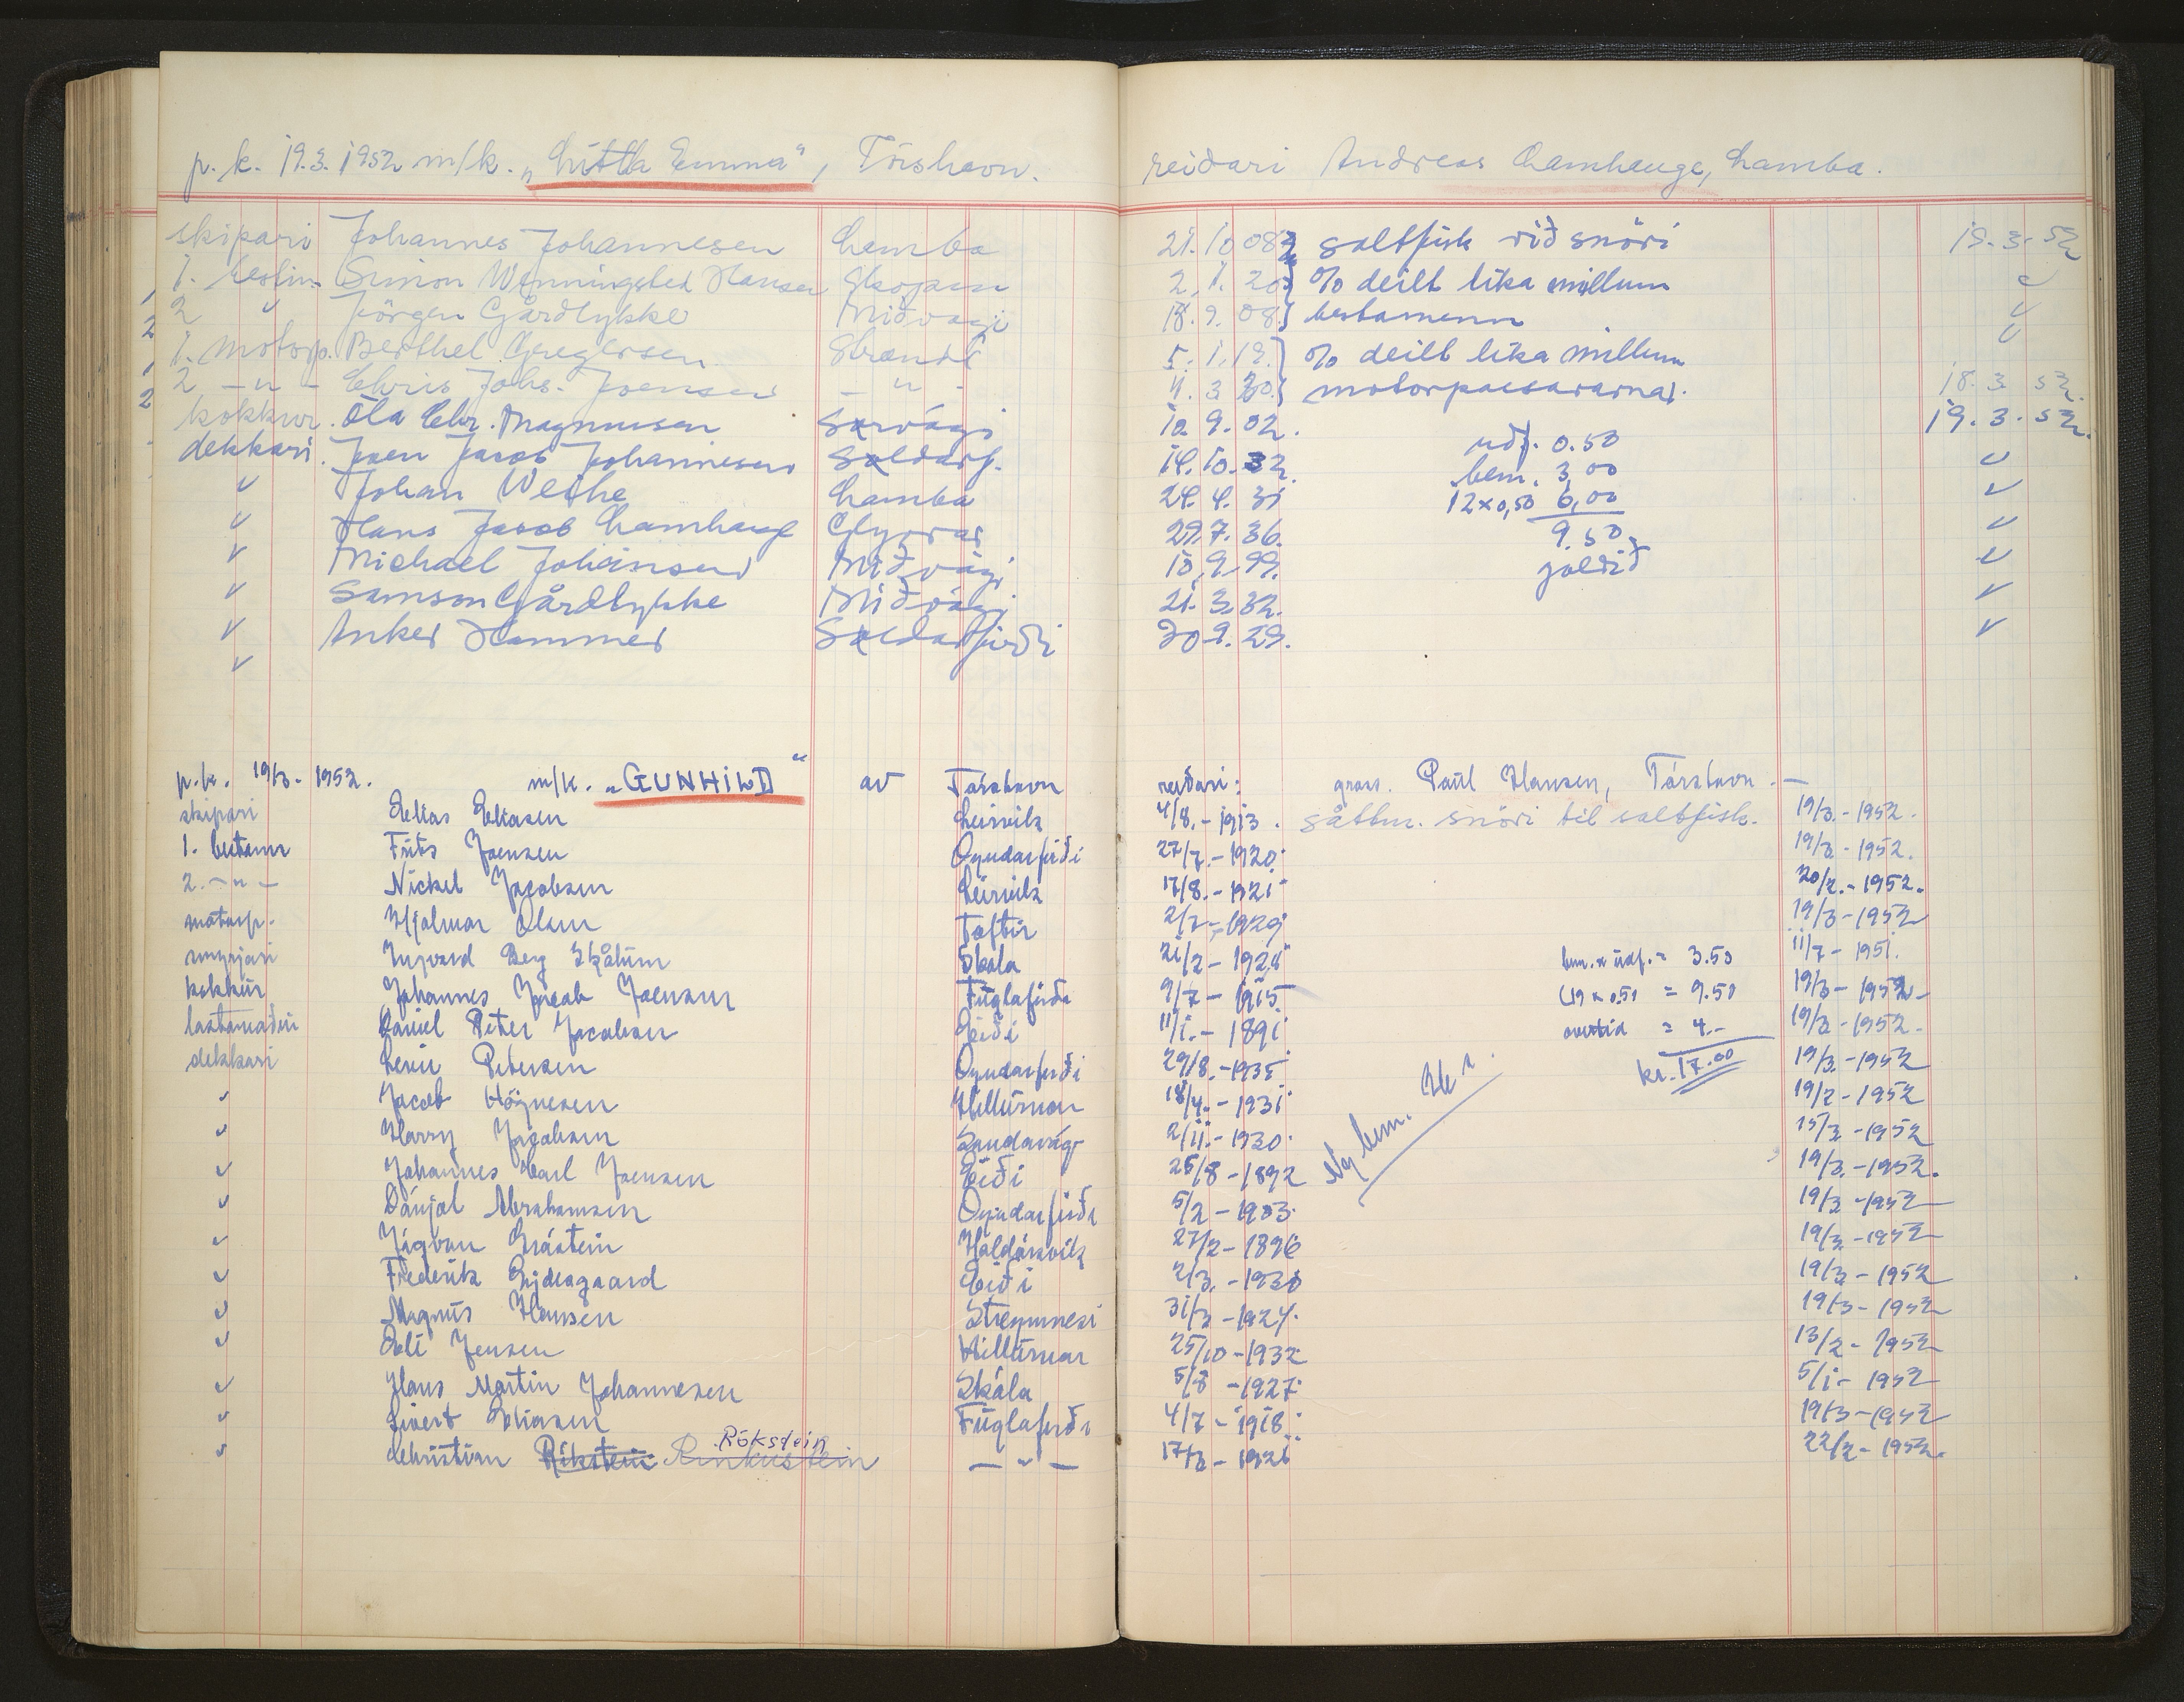 p. k. 19.3.1952 m/k. „Litla Emma“, Tórshavn. reiðari Andreas Lamhauge, Lamba.
skipari Johannes Johannesen Lamba 21.10.08 saltfisk við snöri 19.3.52
1. bestim. Simon Wenningsted Hansen Skopun 2.1.20 % deilt lika millum
2 " Jörgen Gårdlykke Miðvági 18.9.08 bestamenn
1. motorp. Berthel Gregersen Strendi 5.1.12. % deilt lika millum
2 - " - Chris Johs. Joensen - " - 4.3.20. motorpassararnar. 18.3.52.
kokkur. Óla Chr. Magnussen Sørvági 10.9.02. 19.3.52.
udf. 0.50
dekkari. Joen Jacob Johannesen Søldarf. 14.10.32. bem. 3,00
" Johan Weihe Lamba 24.4.31 12x0,50 6,00
" Hans Jacob Lamhauge Glyvrar 29.7.36. 9.50
" Michael Johansen Miðvági 10.9.99. goldið
" Samson Gårdlykke Miðvági 21.3.32.
" Anker Hammer Søldarfirði 30.9.29.
"
p.k. 19/3-1952. m/k. „GUNHILD“ av Tórshavn reiðari: gross. Paul Hansen, Tórshavn.-
skipari Elias Eliasen Leirvik 4/8.-1913. såttm. snöri til saltfisk. 19/3.-1952.
1. bestam Frits Joensen Oyndarfirði 27/7.-1920. 19/3-1952.
2. -"- Nickel Jacobsen Leirvik 17/8.-1921 20/2.-1952.
motorp. Hjalmar Olsen Toftir 2/7-1929 19/3-1952
smyrjari Ingvard Berg Skålum Skála 21/2-1928 bem. & údf. = 3.50 11/7-1951.
kokkur Johannes Jacob Joensen Fuglafirði 9/7-1915 (19 x 0.50 = 9.50 19/3-1952-
lastamaður Daniel Peter Jacobsen Eiði 11/1.-1891 overtid = 4.- 19/3-1952.
dekkari Levi Petersen Oyndarfirði 29/8.-1935 kr. 17.00 19/3.-1952
" Jacob Högnesen Hellurnar 18/4.-1931 19/2-1952
" Harry Jacobsen Sandavágr 2/11.-1930. 15/3.-1952
" Johannes Carl Joensen Eiði 25/8-1892 Ný bem. 19/3.-1952.
" Dánjal Abrahamsen Oyndarfirði 5/2-1933. 19/3-1952
" Jógvan Gråstein Haldórsvik 27/2-1896 19/3-1952
" Frederik Eidesgaard Eiði 2/3.-1930 19/3-1952
" Magnús Hansen Streymnesi 31/3-1924. 19/3-1952
" Eli Jensen Hellurnar 25/10-1932 13/2-1952
" Hans Martin Johannesen Skála 5/8-1927. 5/1-1952
" Sivert Eliasen Fuglafirði 4/7-1918. 19/3-1952
Rókstein
" Christian Rinkustein - " - 17/3-1926 22/2-1952.